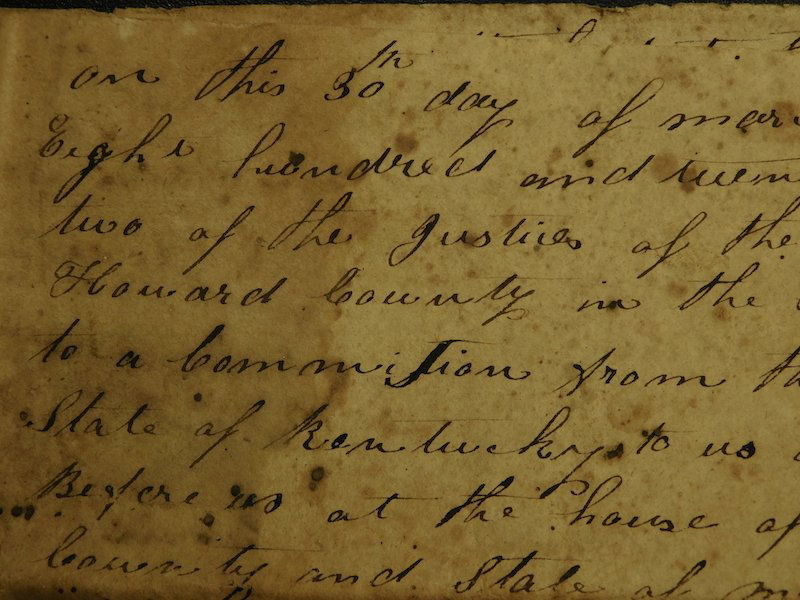 on this 30th day of mar
Eight hundred and twen
two of the Justices of the
Howard County in the
to a Commission from th
State of Kentucky to us
Before us at the house of
County and State of m